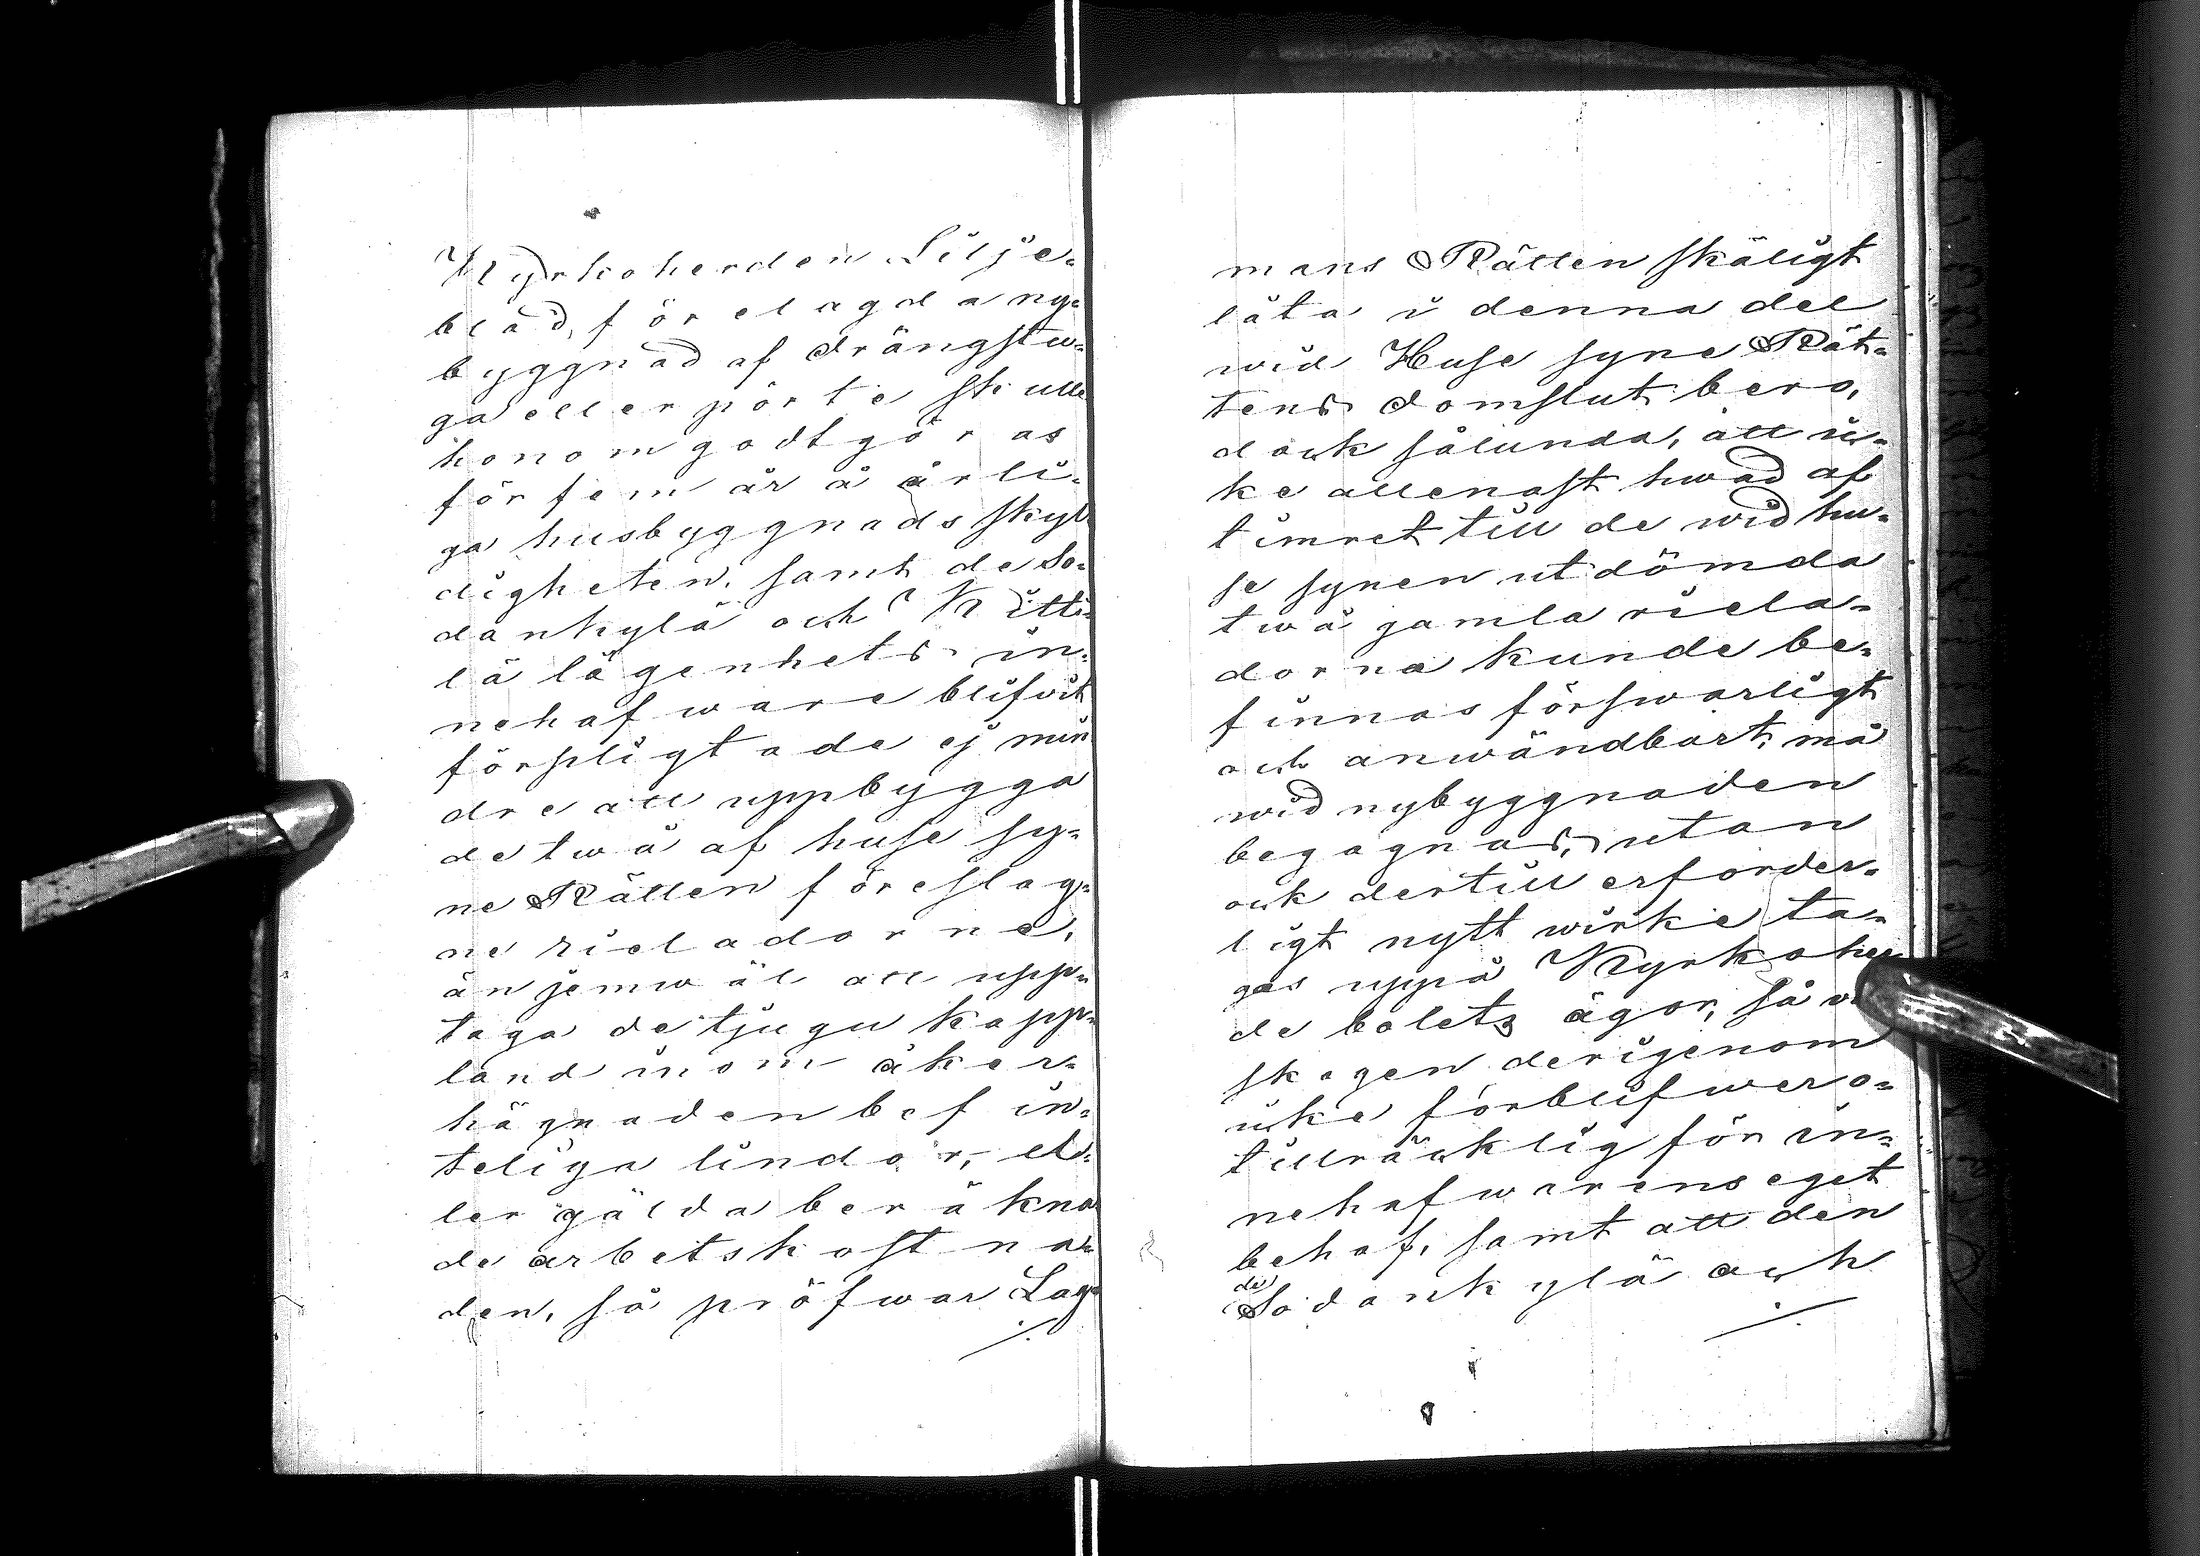 Kyrkoherden Lilje-
blad, förelagda ny-
byggnad af drängstu-
ga eller pörte skulle
honom godtgöras
för fem år å årli-
ga husbyggnads skyl
digheten, samt de So-
dankylä och Kitti-
lä lägenhets in-
nehafware blifvit
förpligtade ej min
dre att uppbygga
de twå af huse sy-
ne Rätten föreslag-
ne rieladorne,
än jemwäl att upp-
taga de tjugu kapp-
land inom åker-
hägnaden befin-
teliga lindor, el-
ler gälda beräkna
de arbetskostna-
den, så pröfwar Lag-
./.
mans Rätten skäligt
låta i denna del
wid Huse syne Rät-
tens domslut bero,
dock sålunda, att ic-
ke allenast hwad af
timret till de wid hu-
se synen utdömda
twå gamla riela-
dorna kunde be-
finnas förswarligt
och anwändbart, må
wid nybyggnaden
begagnas, utan
ock dertill erforder-
ligt nytt wirke ta-
gas uppå Kyrkoher
de bolets ägor, så
skogen derigenom
icke förblifwer o-
tillräcklig för in-
nehafwarens eget
behof, samt att den
de
Sodankylä och
./.